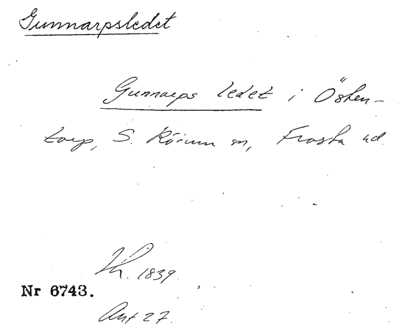 Gunnarpsledet
Gunnarps ledet i Östen-
torp, S. Rörum sn, Frosta hd
Kh. 1839.
Nr 6743.
Ant 27.